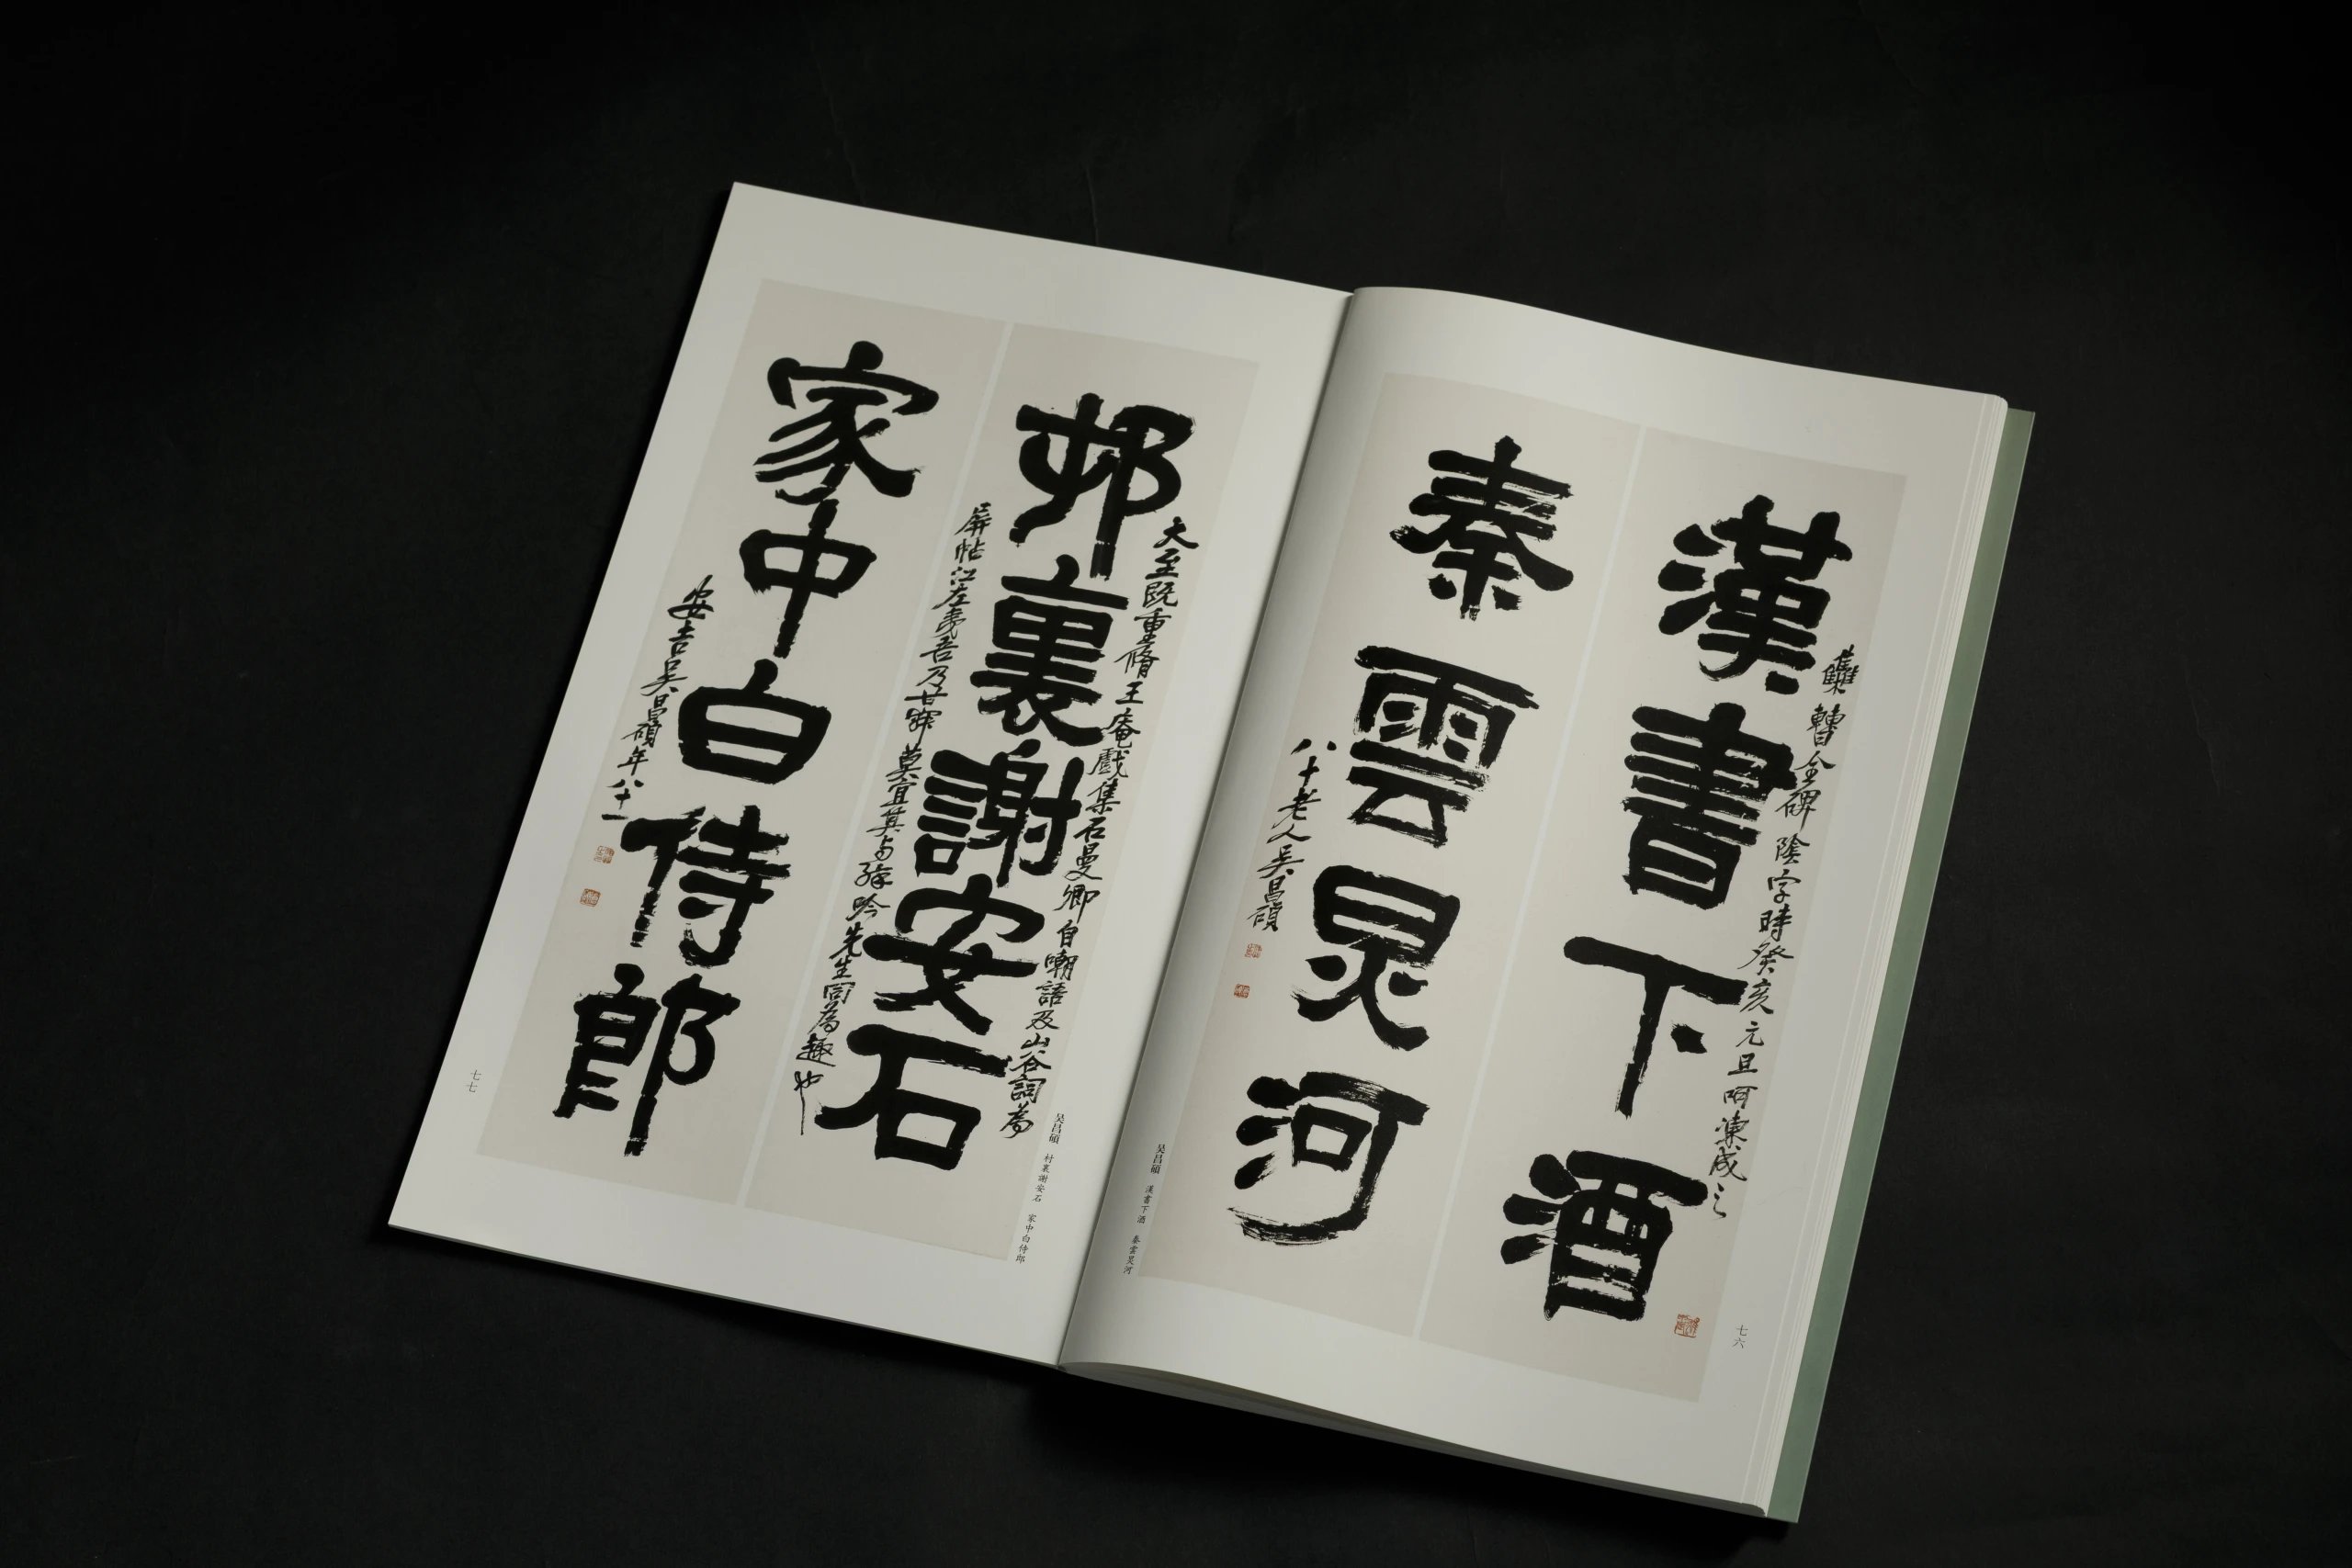 漢書下酒
集曹全碑陰字時癸亥元旦呵凍成之
秦雲炅河
八十老人吴昌碩
吴昌碩 漢書下酒 秦雲炅河
七六
邨裏謝安石
大至既重脩王庵戲集石曼卿自嘲語及山谷詞為
屏帖江左夷吾乃甘寐莫宜其与缘吟先生同為趣也
家中白侍郎
安吉吴昌碩年八十一
吴昌碩 村裏謝安石 家中白侍郎
七七